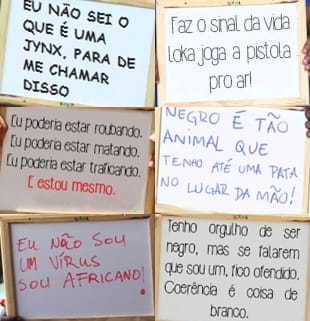 EU NÃO SEI O
QUE É UMA
JYNX, PARA DE
ME CHAMAR
DISSO
Faz o sinal da vida
loka joga a pistola
pro ar!
Eu poderia estar roubando.
Eu poderia estar matando.
Eu poderia estar traficando.
E estou mesmo.
NEGRO É TÃO
ANIMAL QUE
TENHO ATÉ UMA PATA
NO LUGAR DA MÃO!
EU NÃO SOU
UM VÍRUS
SOU AFRICANO!
Tenho orgulho de ser
negro, mas se falarem
que sou um, fico ofendido.
Coerência é coisa de
branco.